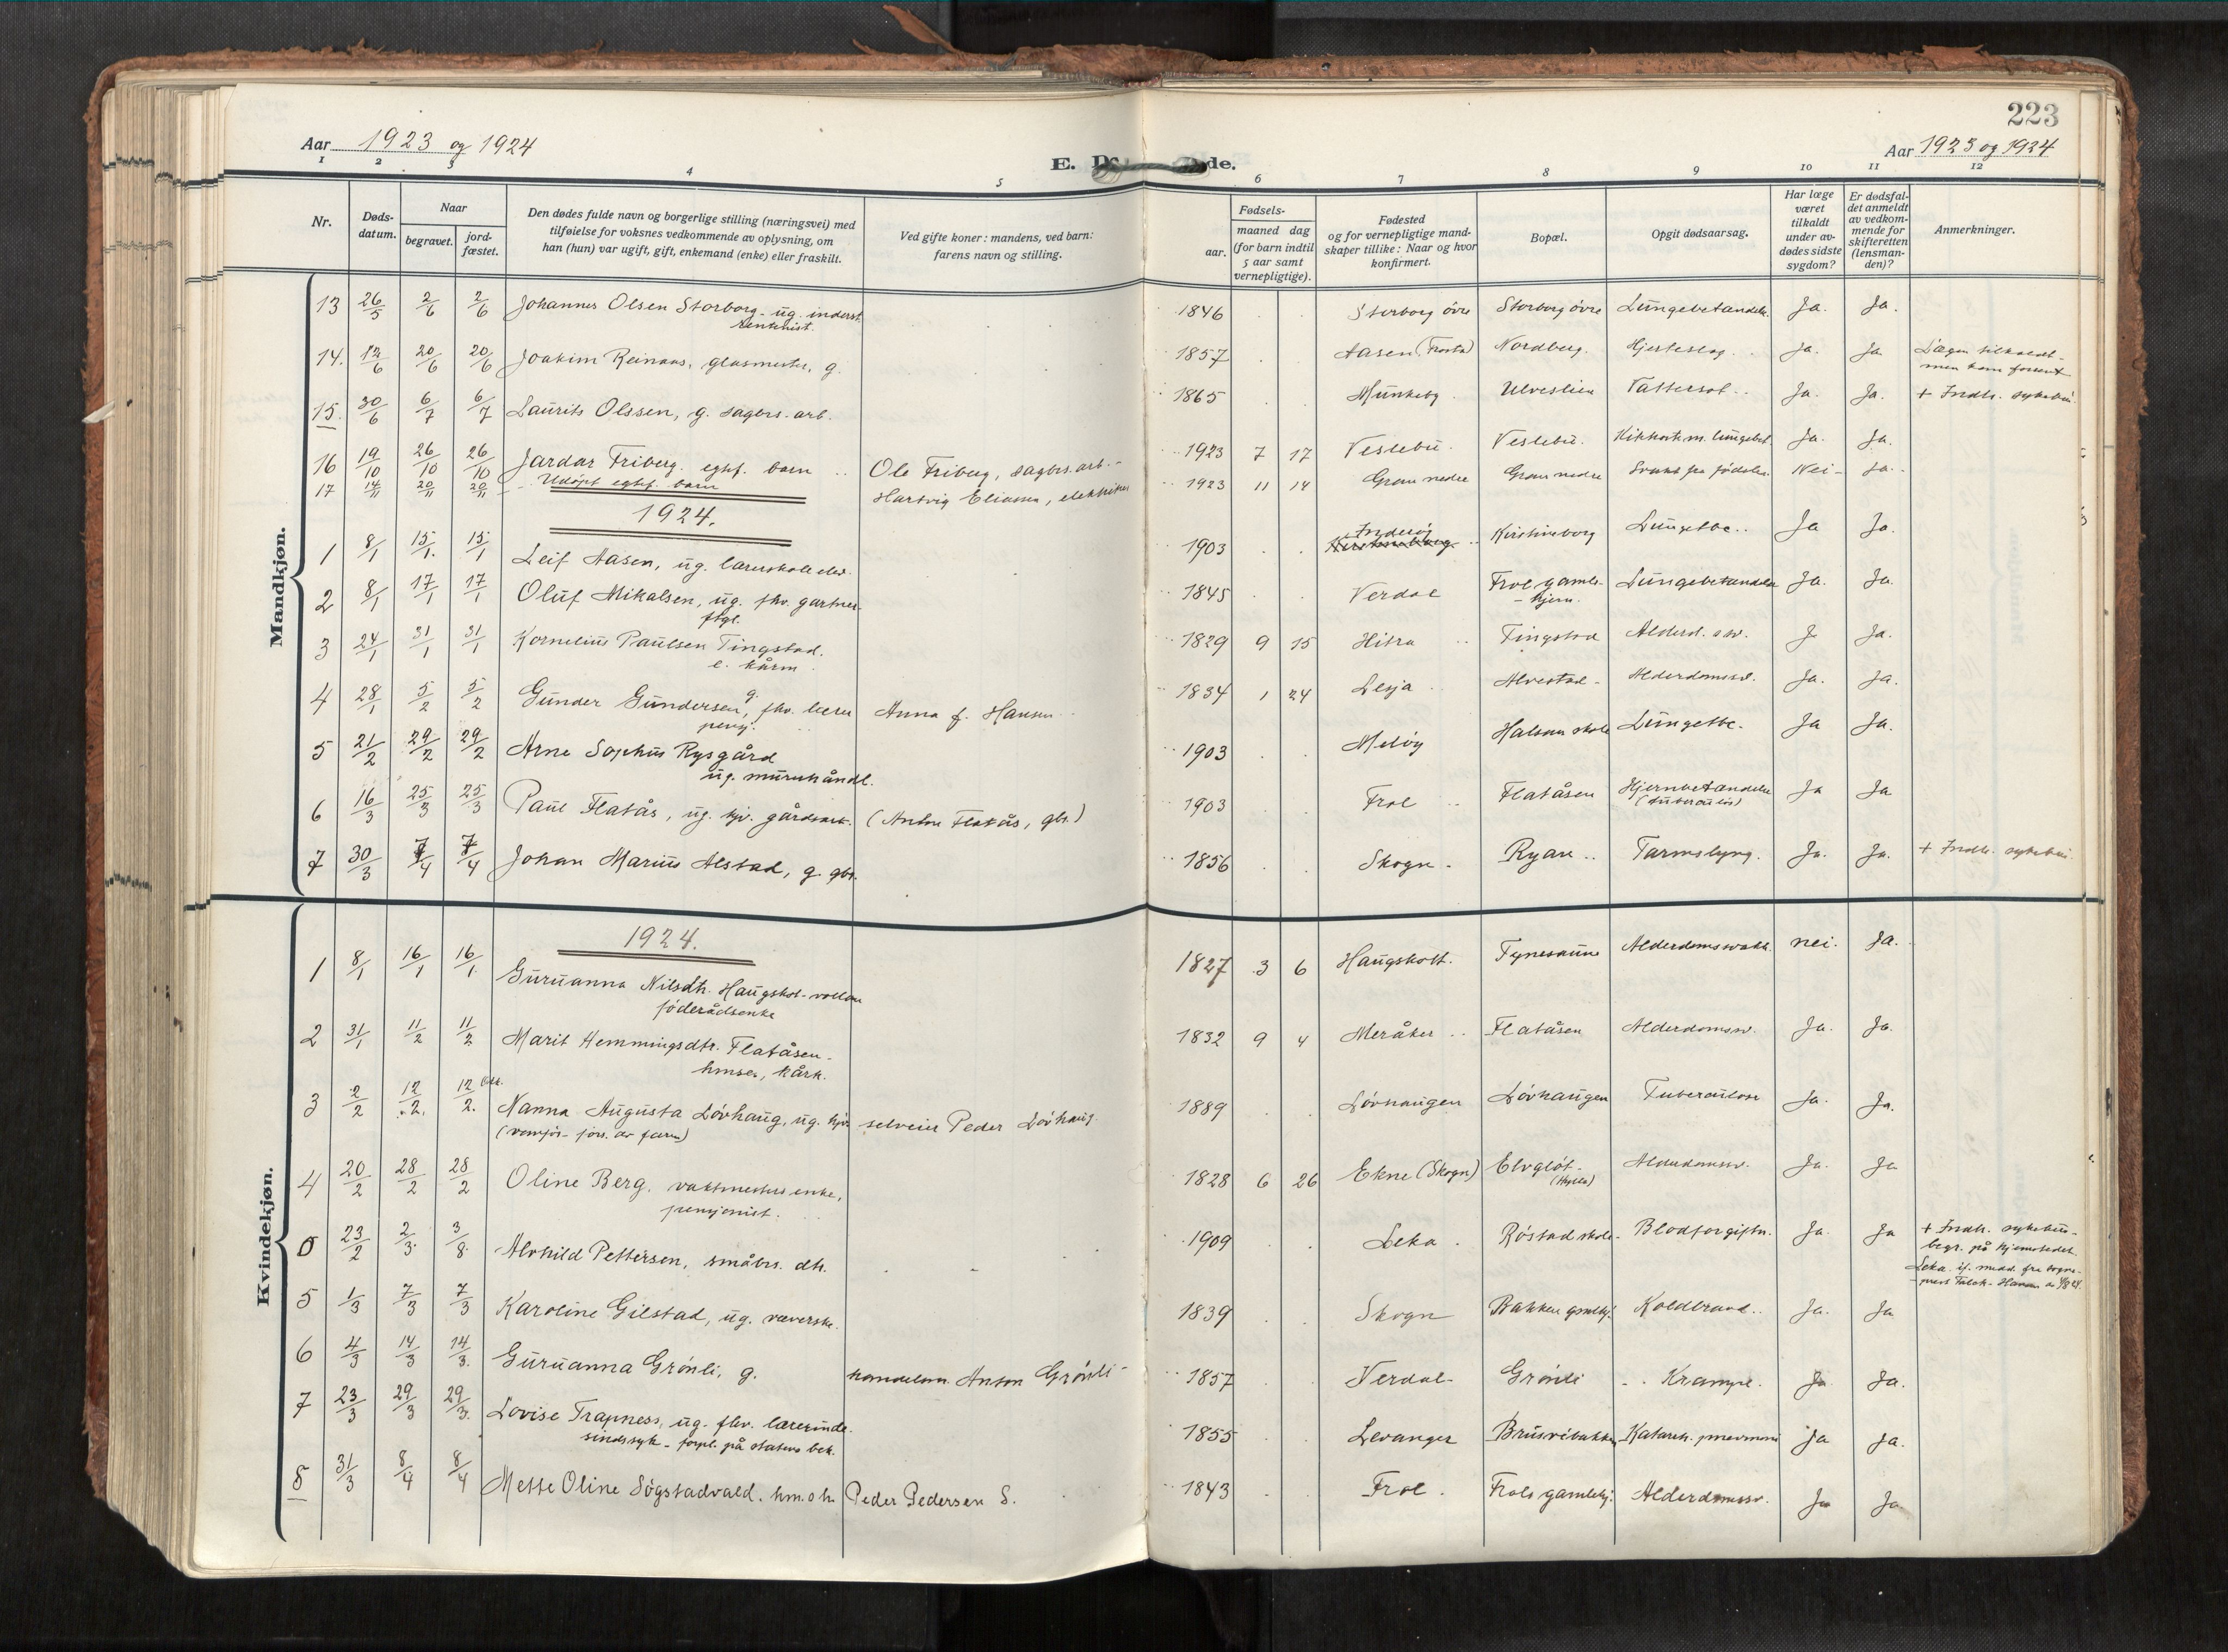 223
Aar 1923 og 1924
E. D de.
Aar 1923 og 1924
1 2 3 4 5 6 7 8 9 10 11 12
Nr.
Døds-datum.
Naar
begravet.
jord-fæstet.
Den dødes fulde navn og borgerlige stilling (næringsvei) med
tilføielse for voksnes vedkommende av oplysning, om
han (hun) var ugift, gift, enkemand (enke) eller fraskilt.
Ved gifte koner: mandens, ved barn:
farens navn og stilling.
Fødsels-
aar.
maaned dag
(for barn indtil
5 aar samt
vernepligtige).
Fødested
og for vernepligtige mand-
skaper tillike: Naar og hvor
konfirmert.
Bopæl.
Opgit dødsaarsag.
Har læge
været
tilkaldt
under av-
dødes sidste
sygdom?
Er dødsfal-
det anmeldt
av vedkom-
mende for
skifteretten
(lensman-
den)?
Anmerkninger.
Mandkjøn.
13 26/5 2/6 2/6 Johannes Olsen Storborg - ug. inderst. 1846 Storborg övre Storborg övre Lungebetændelse. Ja. Ja.
14. 12/6 20/6 20/6 Joakim Reinaas, glasmester, g. 1857 Aasen (Frosta) Nordberg. Hjerteslag. Ja. Ja. Lægen tilkaldt -
men kom forsent
15. 30/6 6/7 6/7 Laurits Olssen, g. sagbrs. arb. 1865 Munkeby Ulveslien Ja. Ja. + Indh. sykehus.
16 19/10 26/10 26/10 Jardar Friberg. egtf. barn Ole Friberg, sagbrs. arb. - 1923 7 17 Veslebu. Veslebu. Kikhoste m. lungebet. Ja. Ja.
17 14/11 20/11 20/11 Udöpt egtf. barn Hartvig Eliassen, elektriker 1923 11 14 Gran nedre Gran nedre Svakt fra födslen. Nei - Ja.
1924.
1 8/1 15/1 15/1 Leif Aasen, ug. lærerskoleelev. 1903 Inderöy Kirstineborg Lungetbc. Ja Ja.
2 8/1 17/1 17/1 Oluf Mikalsen, ug. fhv. gartner 1845 Verdal Frol gamle-
hjem. Lungebetændelse Ja. Ja.
3 24/1 31/1 31/1 Kornelius Paulsen Tingstad.
e. kårm. 1829 9 15 Hitra Tingstad Alderd. sv. J Ja.
4 28/1 5/2 5/2 Gunder Gundersen, g. fhv. lærer
pensj. Anna f. Hansen 1834 1 24 Lesja Alvestad - Alderdomssv. Ja. Ja.
5 21/2 29/2 29/2 Arne Sophus Rysgård
ug. murerhåndl. 1903 Melöy Halsan skole Lungetbc. Ja Ja.
6 16/3 25/3 25/3 Paul Flatås, ug. hjv. gårdsarb. (Anton Flatås, gbr.) 1903 Frol Flatåsen Hjernebetændelse
(tuberculös) Ja Ja
7 30/3 7/4 7/4 Johan Marius Alstad, g. gbr. 1856 Skogn - Ryan Tarmslyng. Ja. Ja. + Indh. sykehus.
Kvindekjøn.
1924.
1 8/1 16/1 16/1 Guruanna Nilsdtr. Haugskot-vollen
föderådsenke 1827 3 6 Haugskott. Tynesaune Alderdomssvakh. nei. Ja.
2 31/1 11/2 11/2 Marit Hemmingsdtr. Flatåsen -
hmse., kårk. 1832 9 4 Meråker Flatåsen Alderdomssv. Ja. Ja.
3 2/2 12/2. 12/2. Nanna Augusta Lövhaug, ug. hjv. selveier Peder Lövhaug 1889 Lövhaugen Lövhaugen Tuberculose Ja. Ja.
(vanför - fors. av faren)
4 20/2 28/2 28/2 Oline Berg. vaktmesters enke,
pensjonist. 1828 6 26 Ekne (Skogn) Alderdomssv. Ja. Ja
0 23/2 2/3. 3/8. Alvhild Pettersen, småbrs. dtr. 1909 Leka Röstad skole - Blodforgiftn. Ja. Ja + Indh. sykehus -
begr. på hjemstedet
Leka if. medd. fra sogne-
5 1/3 7/3 7/3 Karoline Gilstad, ug. væverske. 1839 Skogn Bakken gamlehj. Koldbrand. Ja. Ja
6 4/3 14/3 14/3. Guruanna Grönli, g. handelsm. Anton Grönli - 1857 Verdal - Grönli Krampe. Ja Ja.
7 23/3 29/3 29/3. Lovise Trapness, ug. fhv. lærerinde.
sindssyk - forpl. på statens bek. 1855 Levanger Brusvebakken Katarrh. pneumoni Ja Ja.
8 31/3 8/4 8/4 Mette Oline Sögstadvald. hm. o hr. Peder Pedersen S. 1843 Frol. Frols gamlehj. Alderdomssv. Ja Ja